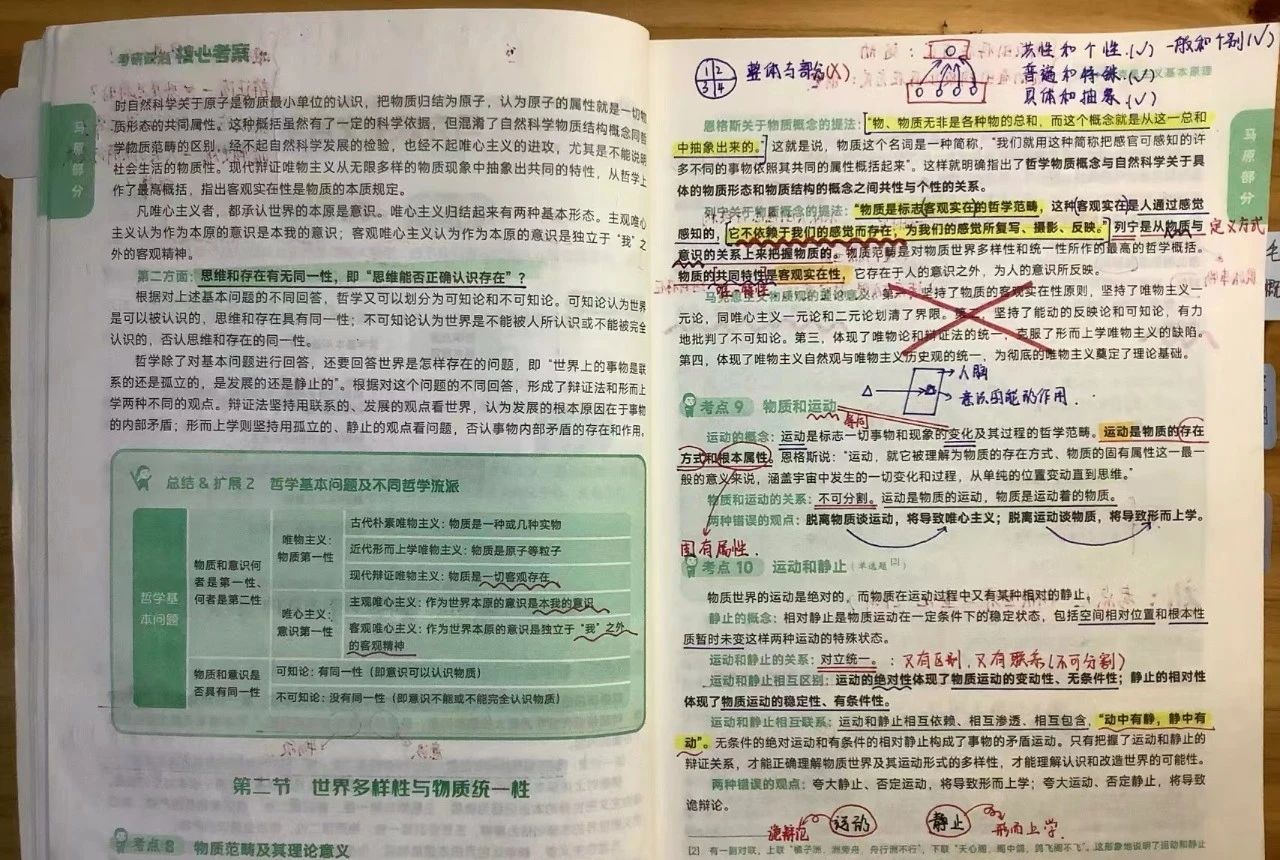 核心考案
马原部分
时自然科学关于原子是物质最小单位的认识，把物质归结为原子，认为原子的属性就是一切物
质形态的共同属性。这种概括虽然有了一定的科学依据，但混淆了自然科学物质结构概念同哲
学物质范畴的区别，经不起自然科学发展的检验，也经不起唯心主义的进攻，尤其是不能说明
社会生活的物质性。现代辩证唯物主义从无限多样的物质现象中抽象出共同的特性，从哲学上
作了最高概括，指出客观实在性是物质的本质规定。
凡唯心主义者，都承认世界的本原是意识。唯心主义归结起来有两种基本形态。主观唯心
主义认为作为本原的意识是本我的意识；客观唯心主义认为作为本原的意识是独立于“我”之
外的客观精神。
第二方面：思维和存在有无同一性，即“思维能否正确认识存在”？
根据对上述基本问题的不同回答，哲学又可以划分为可知论和不可知论。可知论认为世界
是可以被认识的，思维和存在具有同一性；不可知论认为世界是不能被人所认识或不能被完全
认识的，否认思维和存在的同一性。
哲学除了对基本问题进行回答，还要回答世界是怎样存在的问题，即“世界上的事物是联
系的还是孤立的，是发展的还是静止的”。根据对这个问题的不同回答，形成了辩证法和形而上
学两种不同的观点。辩证法坚持用联系的、发展的观点看世界，认为发展的根本原因在于事物
的内部矛盾；形而上学则坚持用孤立的、静止的观点看问题，否认事物内部矛盾的存在和作用。
总结&扩展2 哲学基本问题及不同哲学流派
哲学基本问题
物质和意识何者是第一性、何者是第二性
唯物主义：物质第一性
古代朴素唯物主义：物质是一种或几种实物
近代形而上学唯物主义：物质是原子等粒子
现代辩证唯物主义：物质是一切客观存在
唯心主义：意识第一性
主观唯心主义：作为世界本原的意识是本我的意识
客观唯心主义：作为世界本原的意识是独立于“我”之外
的客观精神
物质和意识是否具有同一性
可知论：有同一性（即意识可以认识物质）
不可知论：没有同一性（即意识不能或不能完全认识物质）
第二节 世界多样性与物质统一性
考点8 物质范畴及其理论意义
1 2 3 4 整体与部分(X)
共性和个性.(√) 一般和个别(√)
普遍和特殊.(√)
具体和抽象.(√)
主义基本原理
马原部分
恩格斯关于物质概念的提法：“物、物质无非是各种物的总和，而这个概念就是从这一总和
中抽象出来的。”这就是说，物质这个名词是一种简称，“我们就用这种简称把感官可感知的许
多不同的事物依照其共同的属性概括起来”。这样就明确指出了哲学物质概念与自然科学关于具
体的物质形态和物质结构的概念之间共性与个性的关系。
列宁关于物质概念的提法：“物质是标志客观实在的哲学范畴，这种客观实在是人通过感觉
感知的，它不依赖于我们的感觉而存在，为我们的感觉所复写、摄影、反映。”列宁是从物质与
定义方式
意识的关系上来把握物质的。物质范畴是对物质世界多样性和统一性所作的最高的哲学概括。
物质的共同特性是客观实在性，它存在于人的意识之外，为人的意识所反映。
唯一特性
马克思主义物质观的理论意义：第一，坚持了物质的客观实在性原则，坚持了唯物主义一
元论，同唯心主义一元论和二元论划清了界限。第二，坚持了能动的反映论和可知论，有力
地批判了不可知论。第三，体现了唯物论和辩证法的统一，克服了形而上学唯物主义的缺陷。
第四，体现了唯物主义自然观与唯物主义历史观的统一，为彻底的唯物主义奠定了理论基础。
人脑
意识因能的作用.
考点9 物质和运动
等同
运动的概念：运动是标志一切事物和现象的变化及其过程的哲学范畴。运动是物质的存在
方式和根本属性。恩格斯说：“运动，就它被理解为物质的存在方式、物质的固有属性这一最一
般的意义来说，涵盖宇宙中发生的一切变化和过程，从单纯的位置变动直到思维。”
物质和运动的关系：不可分割。运动是物质的运动，物质是运动着的物质。
两种错误的观点：脱离物质谈运动，将导致唯心主义；脱离运动谈物质，将导致形而上学。
固有属性.
考点10 运动和静止（单选题[2]）
物质世界的运动是绝对的，而物质在运动过程中又有某种相对的静止。
静止的概念：相对静止是物质运动在一定条件下的稳定状态，包括空间相对位置和根本性
质暂时未变这样两种运动的特殊状态。
运动和静止的关系：对立统一。：又有区别，又有联系(不可分割)
运动和静止相互区别：运动的绝对性体现了物质运动的变动性、无条件性；静止的相对性
体现了物质运动的稳定性、有条件性。
运动和静止相互联系：运动和静止相互依赖、相互渗透、相互包含，“动中有静，静中有
动”。无条件的绝对运动和有条件的相对静止构成了事物的矛盾运动。只有把握了运动和静止的
辩证关系，才能正确理解物质世界及其运动形式的多样性，才能理解认识和改造世界的可能性。
两种错误的观点：夸大静止、否定运动，将导致形而上学；夸大运动、否定静止，将导致
诡辩论。
诡辩论 运动 静止 形而上学.
[2] 有一副对联，上联“橘子洲，洲旁舟，舟行洲不行”，下联“天心阁，阁中鸽，鸽飞阁不飞”。这形象地说明了运动和静止